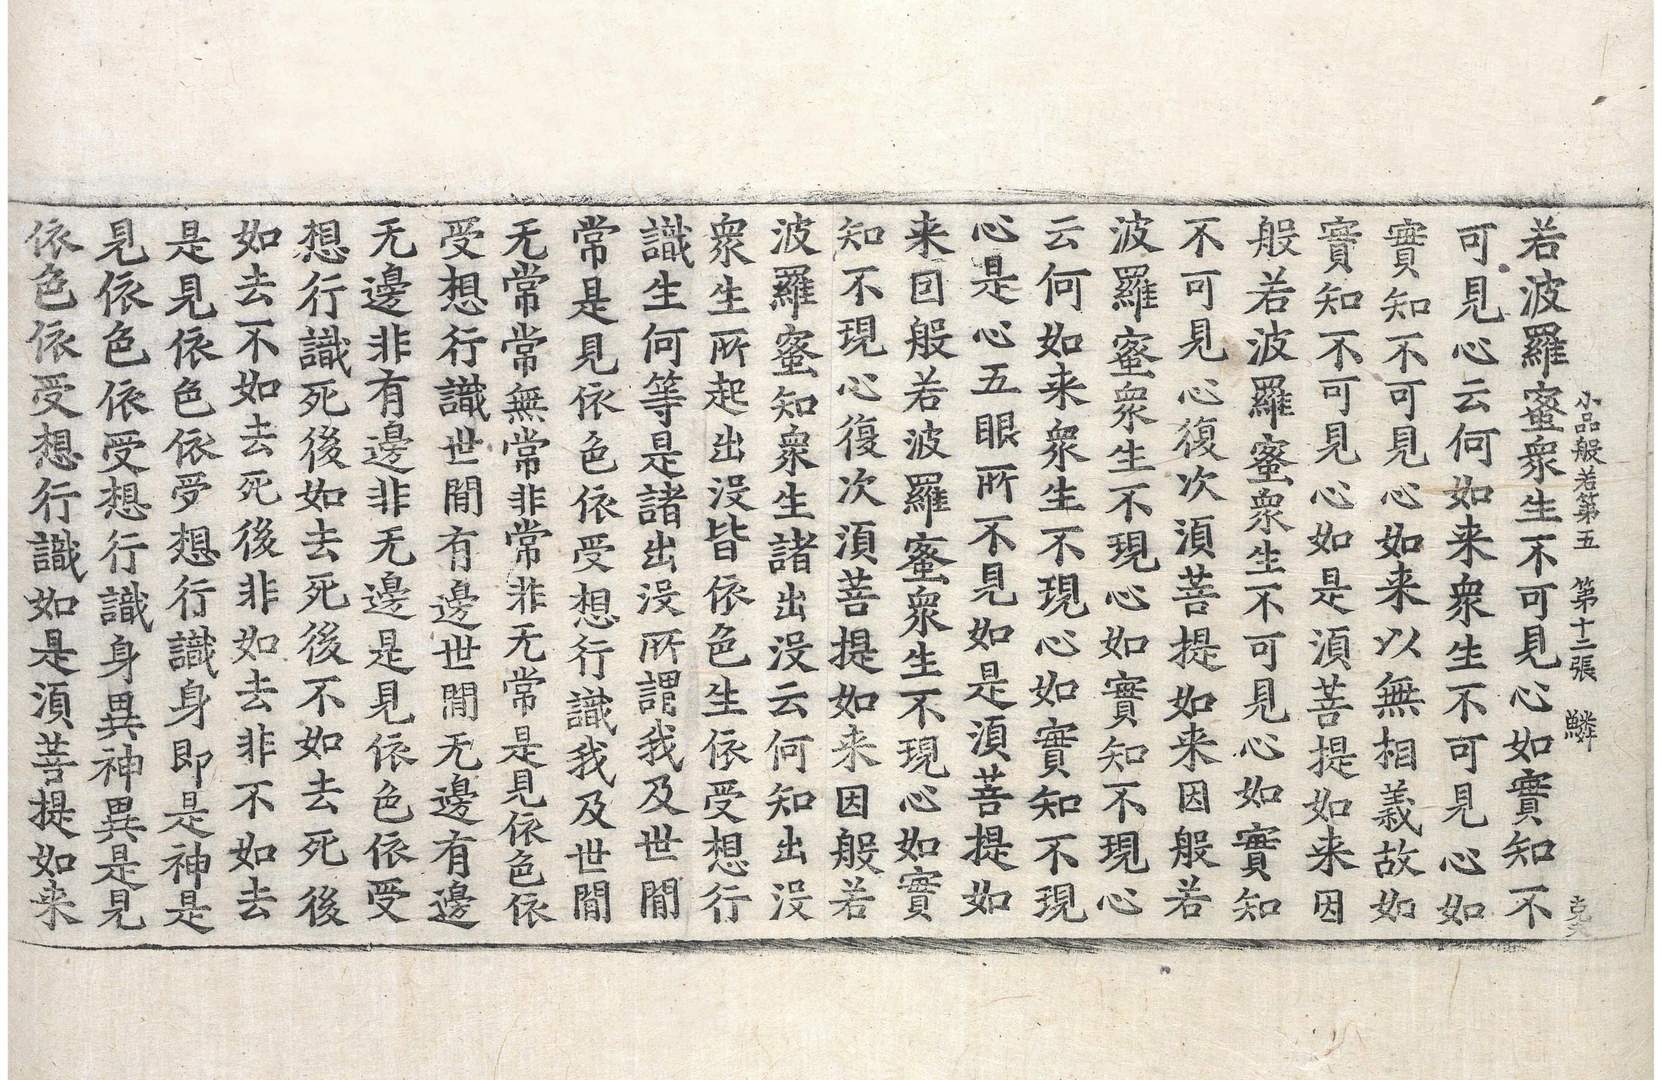 小品般若第五　第十二張　鱗　克
若波羅蜜衆生不可見心如實知不
可見心云何如来衆生不可見心如
實知不可見心如来以無相義故如
實知不可見心如是湏菩提如来因
般若波羅蜜衆生不可見心如實知
不可見心復次湏菩提如来因般若
波羅蜜衆生不現心如實知不現心
云何如来衆生不現心如實知不現
心是心五眼所不見如是湏菩提如
来因般若波羅蜜衆生不現心如實
知不現心復次湏菩提如来因般若
波羅蜜知衆生諸出沒云何知出沒
衆生所起出沒皆依色生依受想行
識生何等是諸出沒所謂我及世間
常是見依色依受想行識我及世間
无常常無常非常非无常是見依色依
受想行識世間有邊世間无邊有邊
无邊非有邊非无邊是見依色依受
想行識死後如去死後不如去死後
如去不如去死後非如去非不如去
是見依色依受想行識身即是神是
見依色依受想行識身異神異是見
依色依受想行識如是湏菩提如来